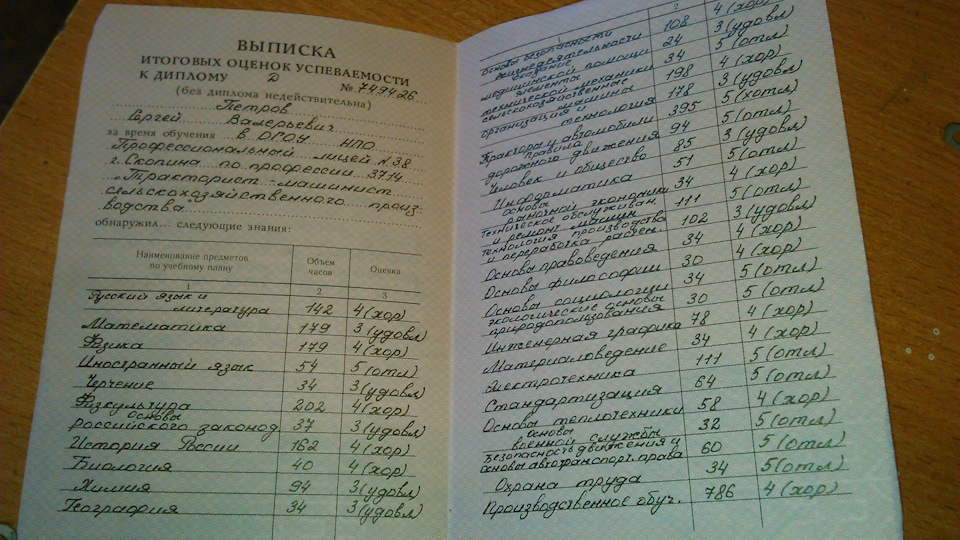 ВЫПИСКА
ИТОГОВЫХ ОЦЕНОК УСПЕВАЕМОСТИ
К ДИПЛОМУ Д № 749426
(без диплома недействительна)
Петров
Сергей Валерьевич
за время обучения в ОГОУ НПО
Профессиональный лицей №38
г. Скопина по профессии 3714
"Тракторист-машинист
сельскохозяйственного произ-
водства"
обнаружил... следующие знания:
Наименование предметов по учебному плану Объем часов Оценка
1 2 3
Русский язык и
литература 142 4 (хор)
Математика 179 3 (удовл)
Физика 179 4 (хор)
Иностранный язык 54 5 (отл)
Черчение 34 3 (удовл)
Физкультура 202 4 (хор)
основы
российского законод 37 3 (удовл)
История России 162 4 (хор)
Биология 40 4 (хор)
Химия 94 3 (удовл)
География 34 3 (удовл)
1 2
Основы безопасности
жизнедеятельности 108 4 (хор)
оказание
медицинской помощи 24 3 (удовл)
элементы
технической механики 34 5 (отл)
сельскохозяйственные
машины 198 4 (хор)
организация и
технология 178 3 (удовл)
Тракторы и автомобили 395 5 (отл)
правила
дорожного движения 94 5 (отл)
Человек и общество 85 3 (удовл)
Информатика 51 5 (отл)
основы
рыночной экономики 34 4 (хор)
Техническое обслуживан.
и ремонт машин 111 5 (отл)
технология производства
и переработка растен. 102 3 (удовл)
Основы правоведения 34 4 (хор)
Основы философии 30 4 (хор)
Основы социологии 34 5 (отл)
экологические основы
природопользования 30 5 (отл)
Инженерная графика 78 4 (хор)
Материаловедение 34 4 (хор)
Электротехника 111 5 (отл)
Стандартизация 64 5 (отл)
Основы теплотехники 58 4 (хор)
основы
военной службы 32 5 (отл)
Безопасность движения и
основы автотранспорт. права 60 5 (отл)
Охрана труда 34 5 (отл)
Производственное обуч. 786 4 (хор)